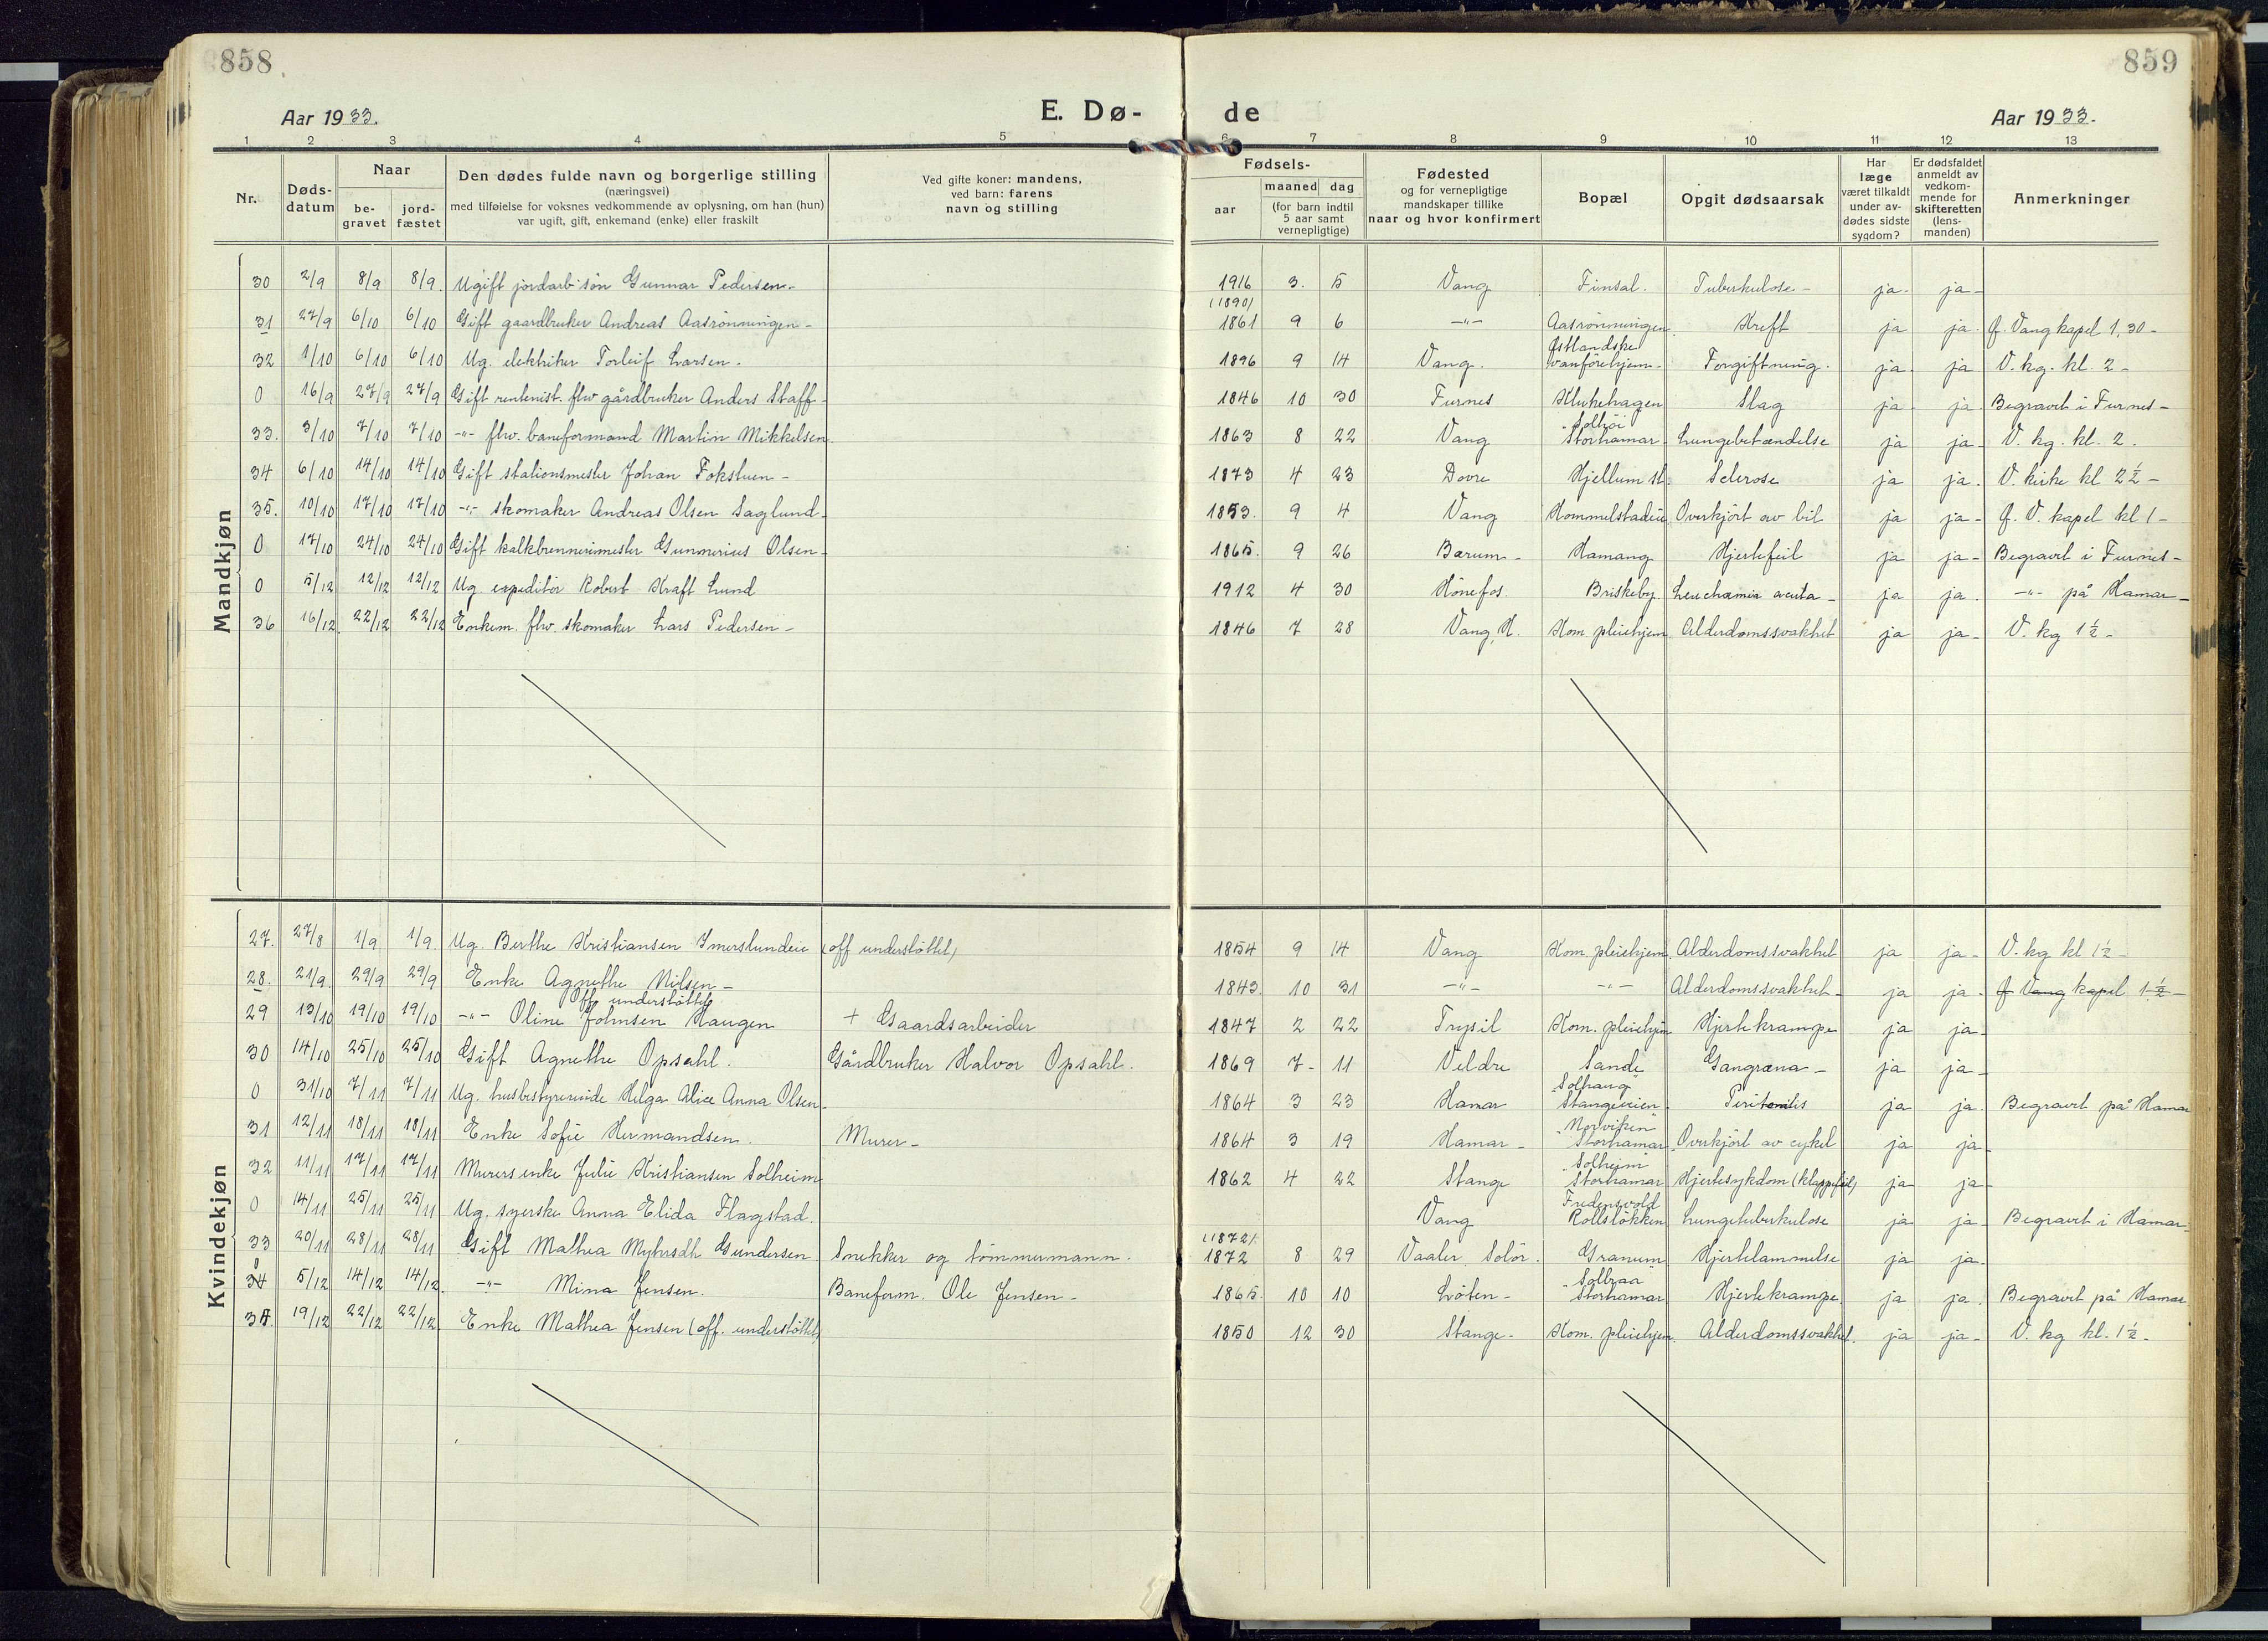 858
859
Aar 1933.
E. Dø-
de
Aar 1933.
1 2 3 4 5 6 7 8 9 10 11 12 13
Nr.
Døds-
datum
Naar
be-
gravet
jord-
fæstet
Den dødes fulde navn og borgerlige stilling
(næringsvei)
med tilføielse for voksnes vedkommende av oplysning, om han (hun)
var ugift, gift, enkemand (enke) eller fraskilt
Ved gifte koner: mandens,
ved barn: farens
navn og stilling
Fødsels-
aar
maaned dag
(for barn indtil
5 aar samt
vernepligtige)
Fødested
og for vernepligtige
mandskaper tillike
naar og hvor konfirmert
Bopæl
Opgit dødsaarsak
Har
læge
været tilkaldt
under av-
dødes sidste
sygdom?
Er dødsfaldet
anmeldt av
vedkom-
mende for
skifteretten
(lens-
manden)
Anmerkninger
Mandkjøn
30 2/9 8/9 8/9. Ugift jordarb. søn Gunnar Pedersen- 1916 3. 5 Vang Finsal. Tuberkulose- ja- ja-
(1890)
31 27/9 6/10 6/10 Gift gaardbruker Andreas Aasrønningen- 1861 9 6 -"- Aasrønningen Kreft ja ja. f. Vang kapel 1,30-
Østlandske
32 1/10 6/10 6/10 Ug. elektriker Torleif Larsen. 1896 9 14 Vang. vanførehjem- Forgiftning. ja- ja V. kg. kl. 2-
0 16/9 27/9 27/9 Gift rentenist. fhv gårdbruker Anders Staff- 1846 10 30 Furnes Klukehagen Slag ja- ja- Begravet i Furnes-
Solhøi
33. 3/10 7/10 7/10 -"- fhv. baneformand Martin Mikkelsen 1863 8 22 Vang Storhamar Lungebetændelse ja ja- V. kg. kl. 2.
34 6/10 14/10 14/10 Gift stationsmester Johan Fokstuen- 1873 4 23 Dovre Hjellum st. Sclerose ja ja. V. kirke kl 2½-
35. 10/10 17/10 17/10 -"- skomaker Andreas Olsen Saglund- 1853. 9 4 Vang Hommelstadeie Overkjørt av bil ja ja- f. V. kapel kl 1-
0 17/10 24/10 24/10 Gift kalkbrennerimester Gunnerius Olsen- 1865. 9 26 Bærum- Hamang Hjertefeil ja ja- Begravet i Furnes-
0 5/12 12/12 12/12 Ug expeditør Robert Kraft Lund 1912 4 30 Hønefos. Briskeby. Leuchæmia acuta- ja ja. -"- på Hamar-
36 16/12. 22/12 22/12 Enkem. fhv. skomaker Lars Pedersen- 1846 7 28 Vang, H. Kom. pleiehjem Alderdomssvakhet ja ja- V. kg 1½-
Kvindekjøn
27. 27/8 1/9 1/9. Ug. Berthe Kristiansen Imerslundeie (off understøttet) 1854 9 14 Vang Kom. pleiehjem. Alderdomssvakhet ja ja- V. kg kl 1½-
28. 21/9. 29/9 29/9 Enke Agnethe Nilsen- 1843. 10 31 -"- -"- Alderdomssvakhet- ja ja- f Vang kapel 1½-
Off understøttet
29 13/10 19/10 19/10 -"- Oline Johnsen Haugen + Gaardsarbeider 1847 2 22 Trysil Kom. pleiehjem Hjertekrampe ja ja-
30 14/10 25/10 25/10 Gift Agnethe Opsahl. Gårdbruker Halvor Opsahl. 1869 7- 11 Veldre Sande Gangræna- ja ja-
"Solhaug"
0 31/10 7/11 7/11 Ug. husbestyrerinde Helga Alice Anna Olsen- 1864 3 23 Hamar Stangeveien- Peritonitis ja ja. Begravet på Hamar
"Norviken"
31 12/11 18/11 18/11 Enke Sofie Hermandsen. Murer- 1864 3 19 Hamar- Storhamar Overkjørt av cykel ja ja-
"Solheim"
32 11/11 17/11 17/11 Murers enke Julie Kristiansen Solheim 1862 4 22 Stange Storhamar Hjertesykdom (klappefeil) ja ja-
Fredensvold
0 14/11 25/11 25/11 Ug. syerske Anna Elida Flagstad. Vang Rollsløkken Lungetuberkulose ja ja- Begravet i Hamar-
(1872).
33 20/11 28/11 28/11 Gift Mathea Myhrsdh Gundersen Snekker og tømmermann. 1872 8 29 Vaaler, Solør. Granum Hjertelammelse ja ja-
"Solbraa"
0 34 5/12 14/12 14/12. -"- Mina Jensen. Baneform. Ole Jensen- 1865. 10 10 Løten- Storhamar Hjertekrampe. ja ja. Begravet på Hamar
34. 19/12 22/12 22/12. Enke Mathea Jensen (off. understøttet) 1850 12 30 Stange- Kom. pleiehjem. Alderdomssvakhet. ja ja- V. kg kl. 1½-